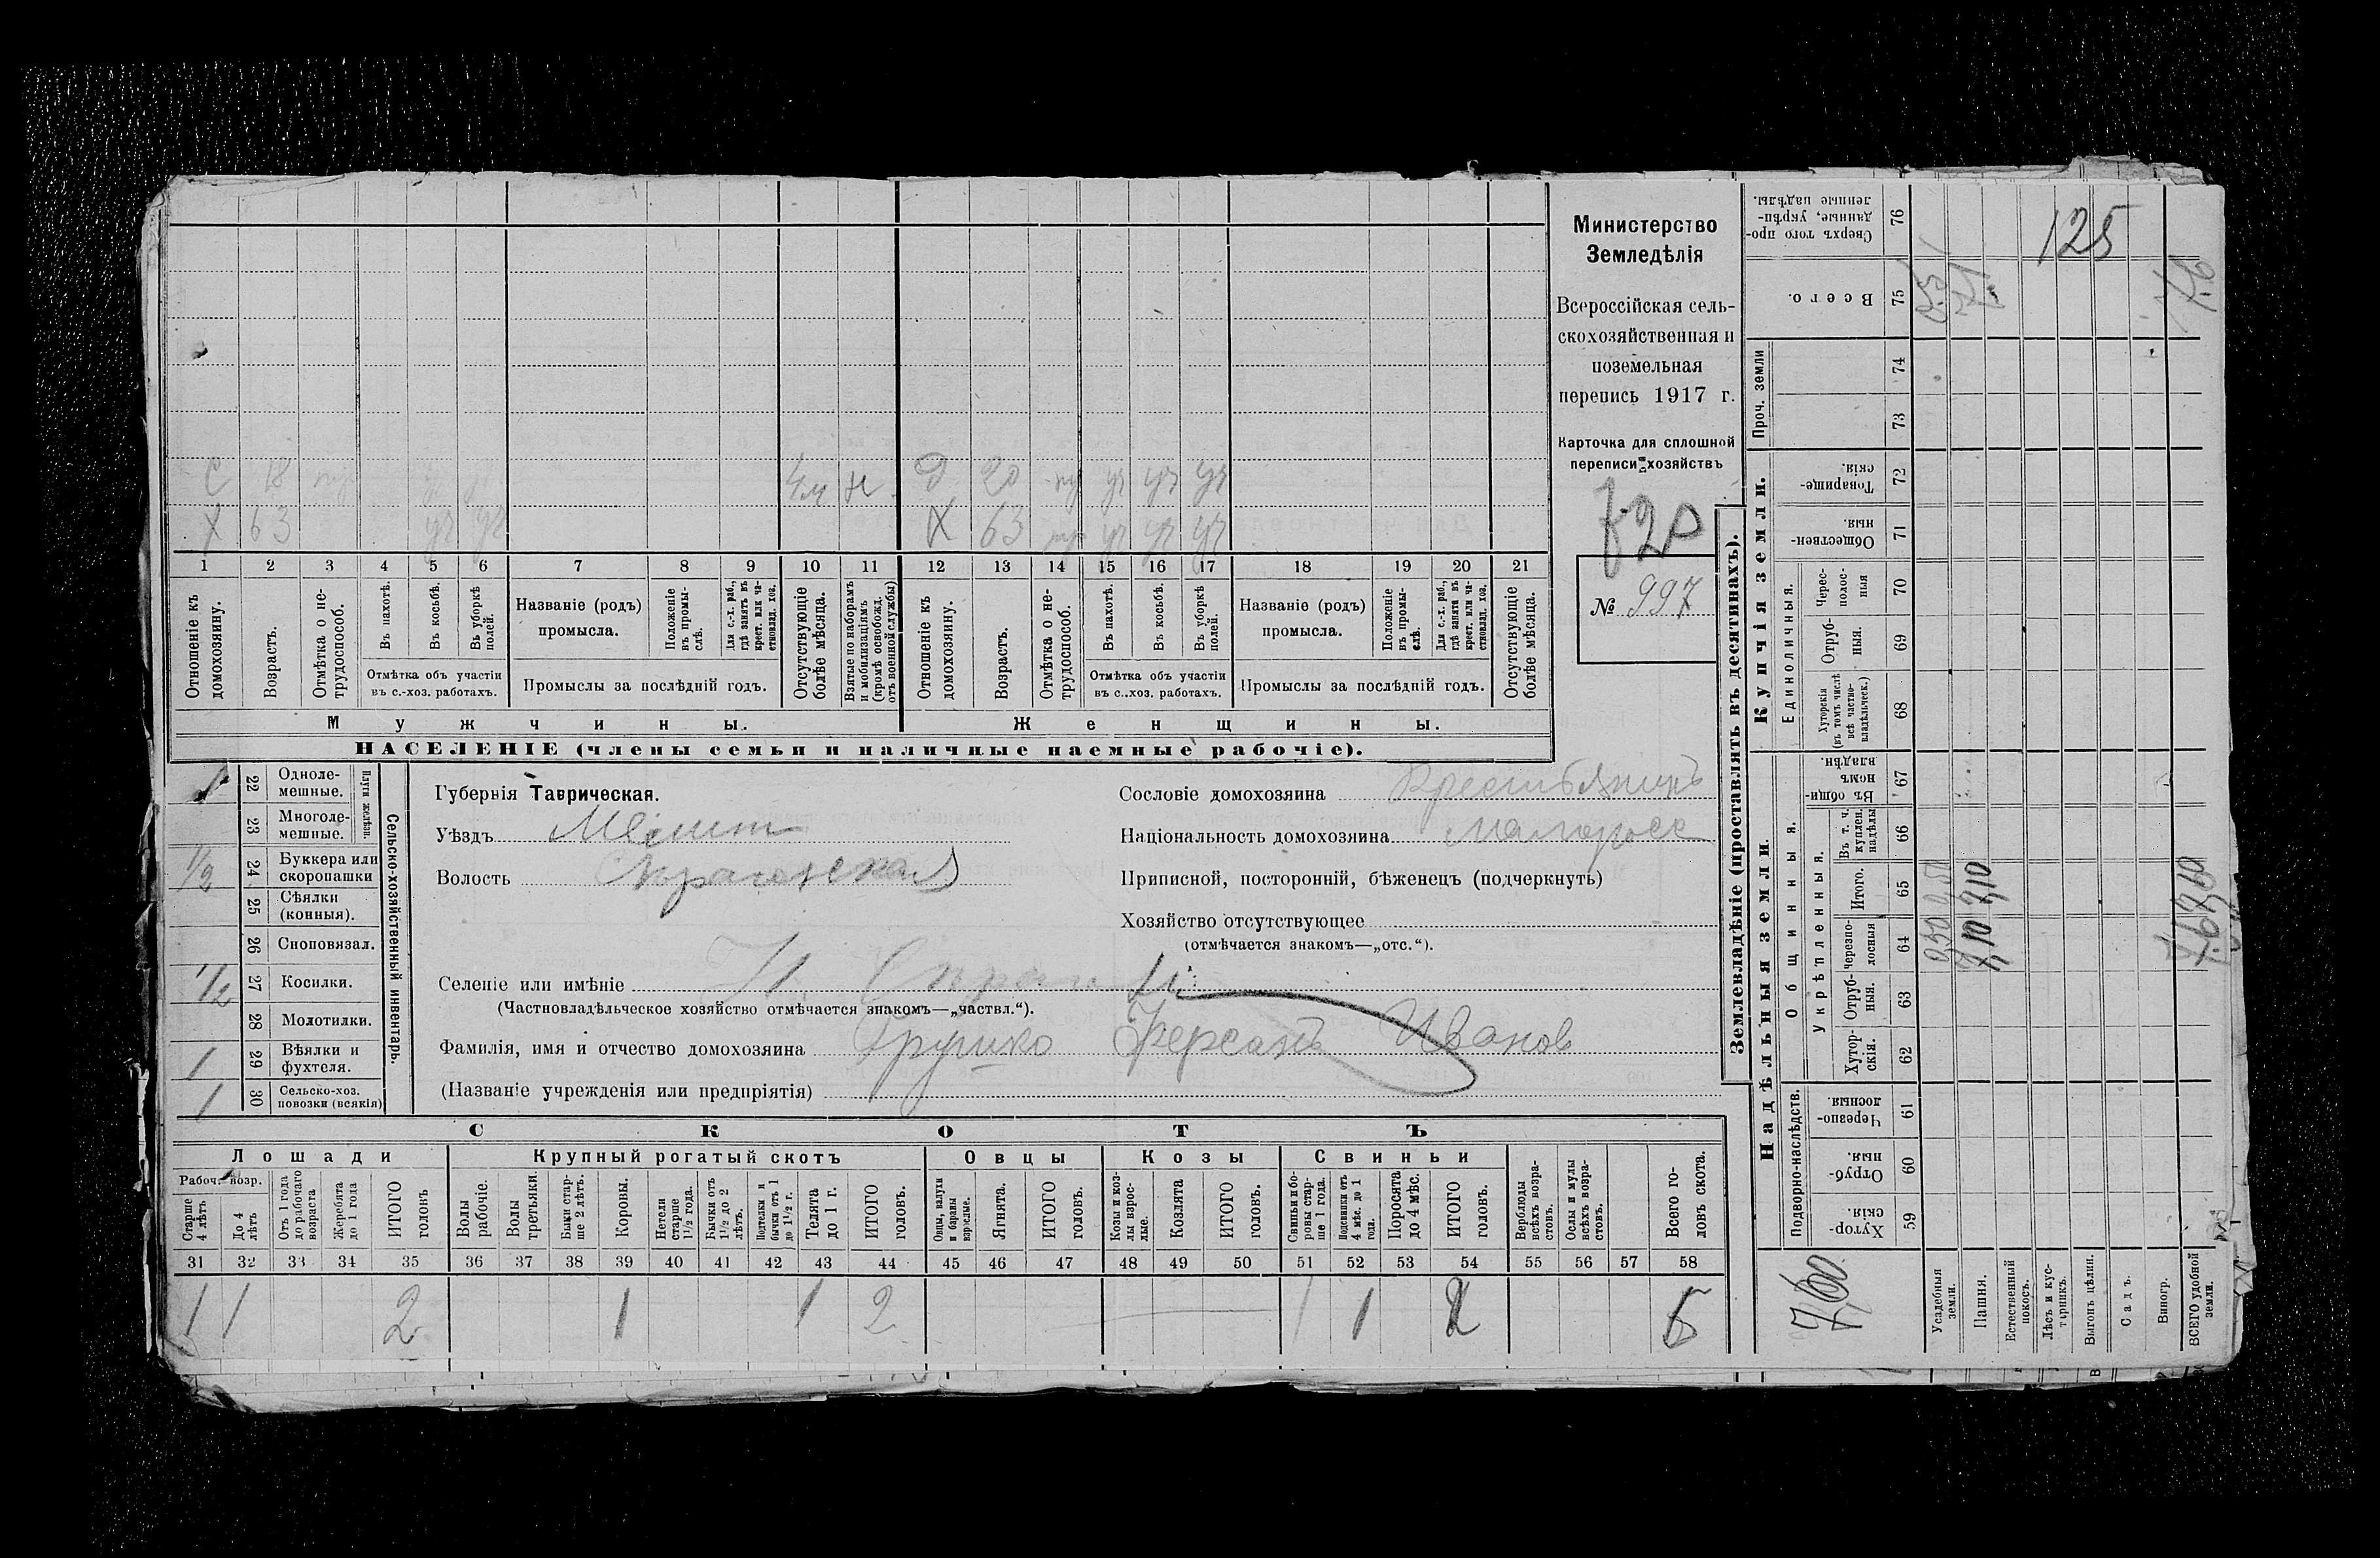 Министерство
Земледѣлія
Всероссійская сель-
скохозяйственная и
поземельная
перепись 1917 г.
Карточка для сплошной
переписи хозяйствъ
№ 997
С 18 4м н Д 20 уч уч уч
Х 63 уч уч Ж 63 уч уч уч
1 2 3 4 5 6 7 8 9 10 11 12 13 14 15 16 17 18 19 20 21
Отношеніе къ домохозяину.
Возрастъ.
Отмѣтка о не-трудоспособ.
Въ пахотѣ.
Въ косьбѣ.
Въ уборкѣ полей.
Отмѣтка объ участіи
въ с.-хоз. работахъ.
Названіе (родъ)
промысла.
Положеніе въ промы-слѣ.
Для с.-х. раб., гдѣ занятъ въ крест. или ча-стновлад. хоз.
Промыслы за послѣдній годъ.
Отсутствующіе болѣе мѣсяца.
Взятые по наборамъ и мобилизаціямъ (кромѣ освобожд. отъ военной службы)
Отношеніе къ домохозяину.
Возрастъ.
Отмѣтка о не-трудоспособ.
Въ пахотѣ.
Въ косьбѣ.
Въ уборкѣ полей.
Отмѣтка объ участіи
въ с.-хоз. работахъ.
Названіе (родъ)
промысла.
Положеніе въ промы-слѣ.
Для с.-х. раб., гдѣ занятъ въ крест. или ча-стновлад. хоз.
Промыслы за послѣдній годъ.
Отсутствующіе болѣе мѣсяца.
Мужчины. Женщины.
НАСЕЛЕНІЕ (члены семьи и наличные наемные рабочіе).
Сельско-хозяйственный инвентарь.
Плуги желѣзн.
1 22 Одноле-мешные.
23 Многоле-мешные.
1/2 24 Буккера или скоропашки
25 Сѣялки (конныя).
26 Сноповязал.
1/2 27 Косилки.
28 Молотилки.
1 29 Вѣялки и фухтеля.
1 30 Сельско-хоз. повозки (всякія)
Губернія Таврическая.
Уѣздъ Мелит
Волость
Сословіе домохозяина Крестьянинъ
Національность домохозяина малоросс
Приписной, посторонній, бѣженецъ (подчеркнуть)
Хозяйство отсутствующее
(отмѣчается знакомъ—„отс.“).
Селеніе или имѣніе
(Частновладѣльческое хозяйство отмѣчается знакомъ—„частвл.“).
Фамилія, имя и отчество домохозяина Иванов
(Названіе учрежденія или предпріятія)
СКОТЪ
Лошади Крупный рогатый скотъ Овцы Козы Свиньи
Рабоч. возр.
Старше 4 лѣтъ
До 4 лѣтъ
Отъ 1 года до рабочаго возраста
Жеребята до 1 года
ИТОГО головъ
Волы рабочіе.
Волы третьяки.
Быки стар-ше 2 лѣтъ.
Коровы.
Нетели старше 1 1/2 года.
Бычки отъ 1 1/2 до 2 лѣтъ.
Подтелки и бычки отъ 1 до 1 1/2 г.
Телята до 1 г.
ИТОГО головъ.
Овцы, валухи и бараны взрослые.
Ягнята.
ИТОГО головъ.
Козы и коз-лы взрос-лые.
Козлята
ИТОГО головъ.
Свиньи и бо-ровы стар-ше 1 года.
Подсвинки отъ 4 мѣс. до 1 года.
Поросята до 4 мѣс.
ИТОГО головъ.
Верблюды всѣхъ возра-стовъ.
Ослы и мулы всѣхъ возра-стовъ.
Всего го-ловъ скота.
31 32 33 34 35 36 37 38 39 40 41 42 43 44 45 46 47 48 49 50 51 52 53 54 55 56 57 58
1 1 2 1 1 2 1 1 2
Землевладѣніе (проставлять въ десятинахъ).
Надѣльныя земли.
Купчія земли.
Проч. земли
Подворно-наслѣдств.
Общинныя.
Укрѣпленныя.
Единоличныя.
Хутор-скія. 59
Отруб-ныя. 60
Черезпо-лосныя 61
Хутор-скія. 62
Отруб-ныя. 63
Черезпо-лосныя 64
Итого. 65
Въ т. ч. куплен. надѣлы 66
Въ общи-номъ владѣн. 67
Хуторскія (въ томъ числѣ всѣ частно-владѣльческ.) 68
Отруб-ныя. 69
Черес-полос-ныя 70
Обществен-ныя 71
Товарище-скія. 72
73
74
Всего. 75
Сверхъ того про-данные, укрѣп-ленные надѣлы. 76
125
7,60
Усадебныя земли. 0,50 0,50
Пашня. 7,10 7,10
Естественный покосъ.
Лѣсъ и кус-тарникъ.
Выгонъ цѣлин.
Садъ.
Виногр.
ВСЕГО удобной земли. 7,60 7,60